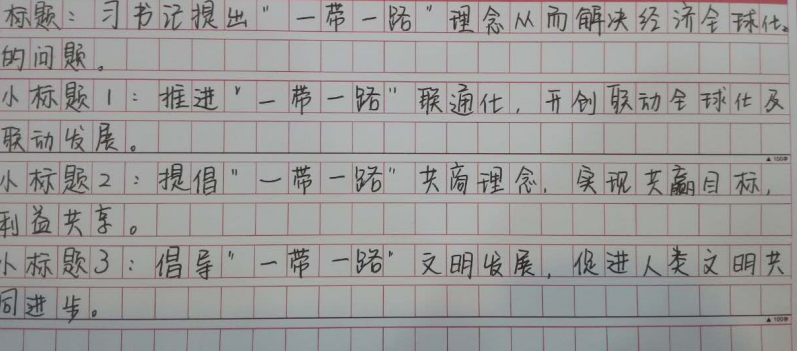 标题：习书记提出"一带一路"理念从而解决经济全球化
的问题。
小标题1：推进"一带一路"联通化，开创联动全球化及
联动发展。
▲100字
小标题2：提倡"一带一路"共商理念，实现共赢目标，
利益共享。
小标题3：倡导"一带一路"文明发展，促进人类文明共
同进步。